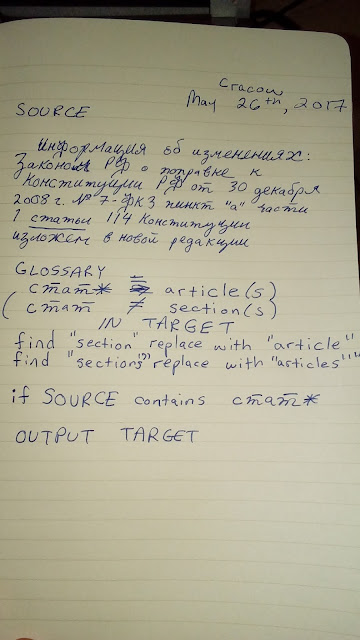 Cracow
May 26th, 2017
SOURCE
Информация об изменениях:
Законом РФ о поправке к
Конституции РФ от 30 декабря
2008 г. № 7-ФКЗ пункт "а" части
1 статьи 114 Конституции
изложен в новой редакции
GLOSSARY
стат* = article(s)
(стат ≠ section(s)
IN TARGET
find "section" replace with "article"
find "sections" replace with "articles"
if SOURCE contains стат*
OUTPUT TARGET